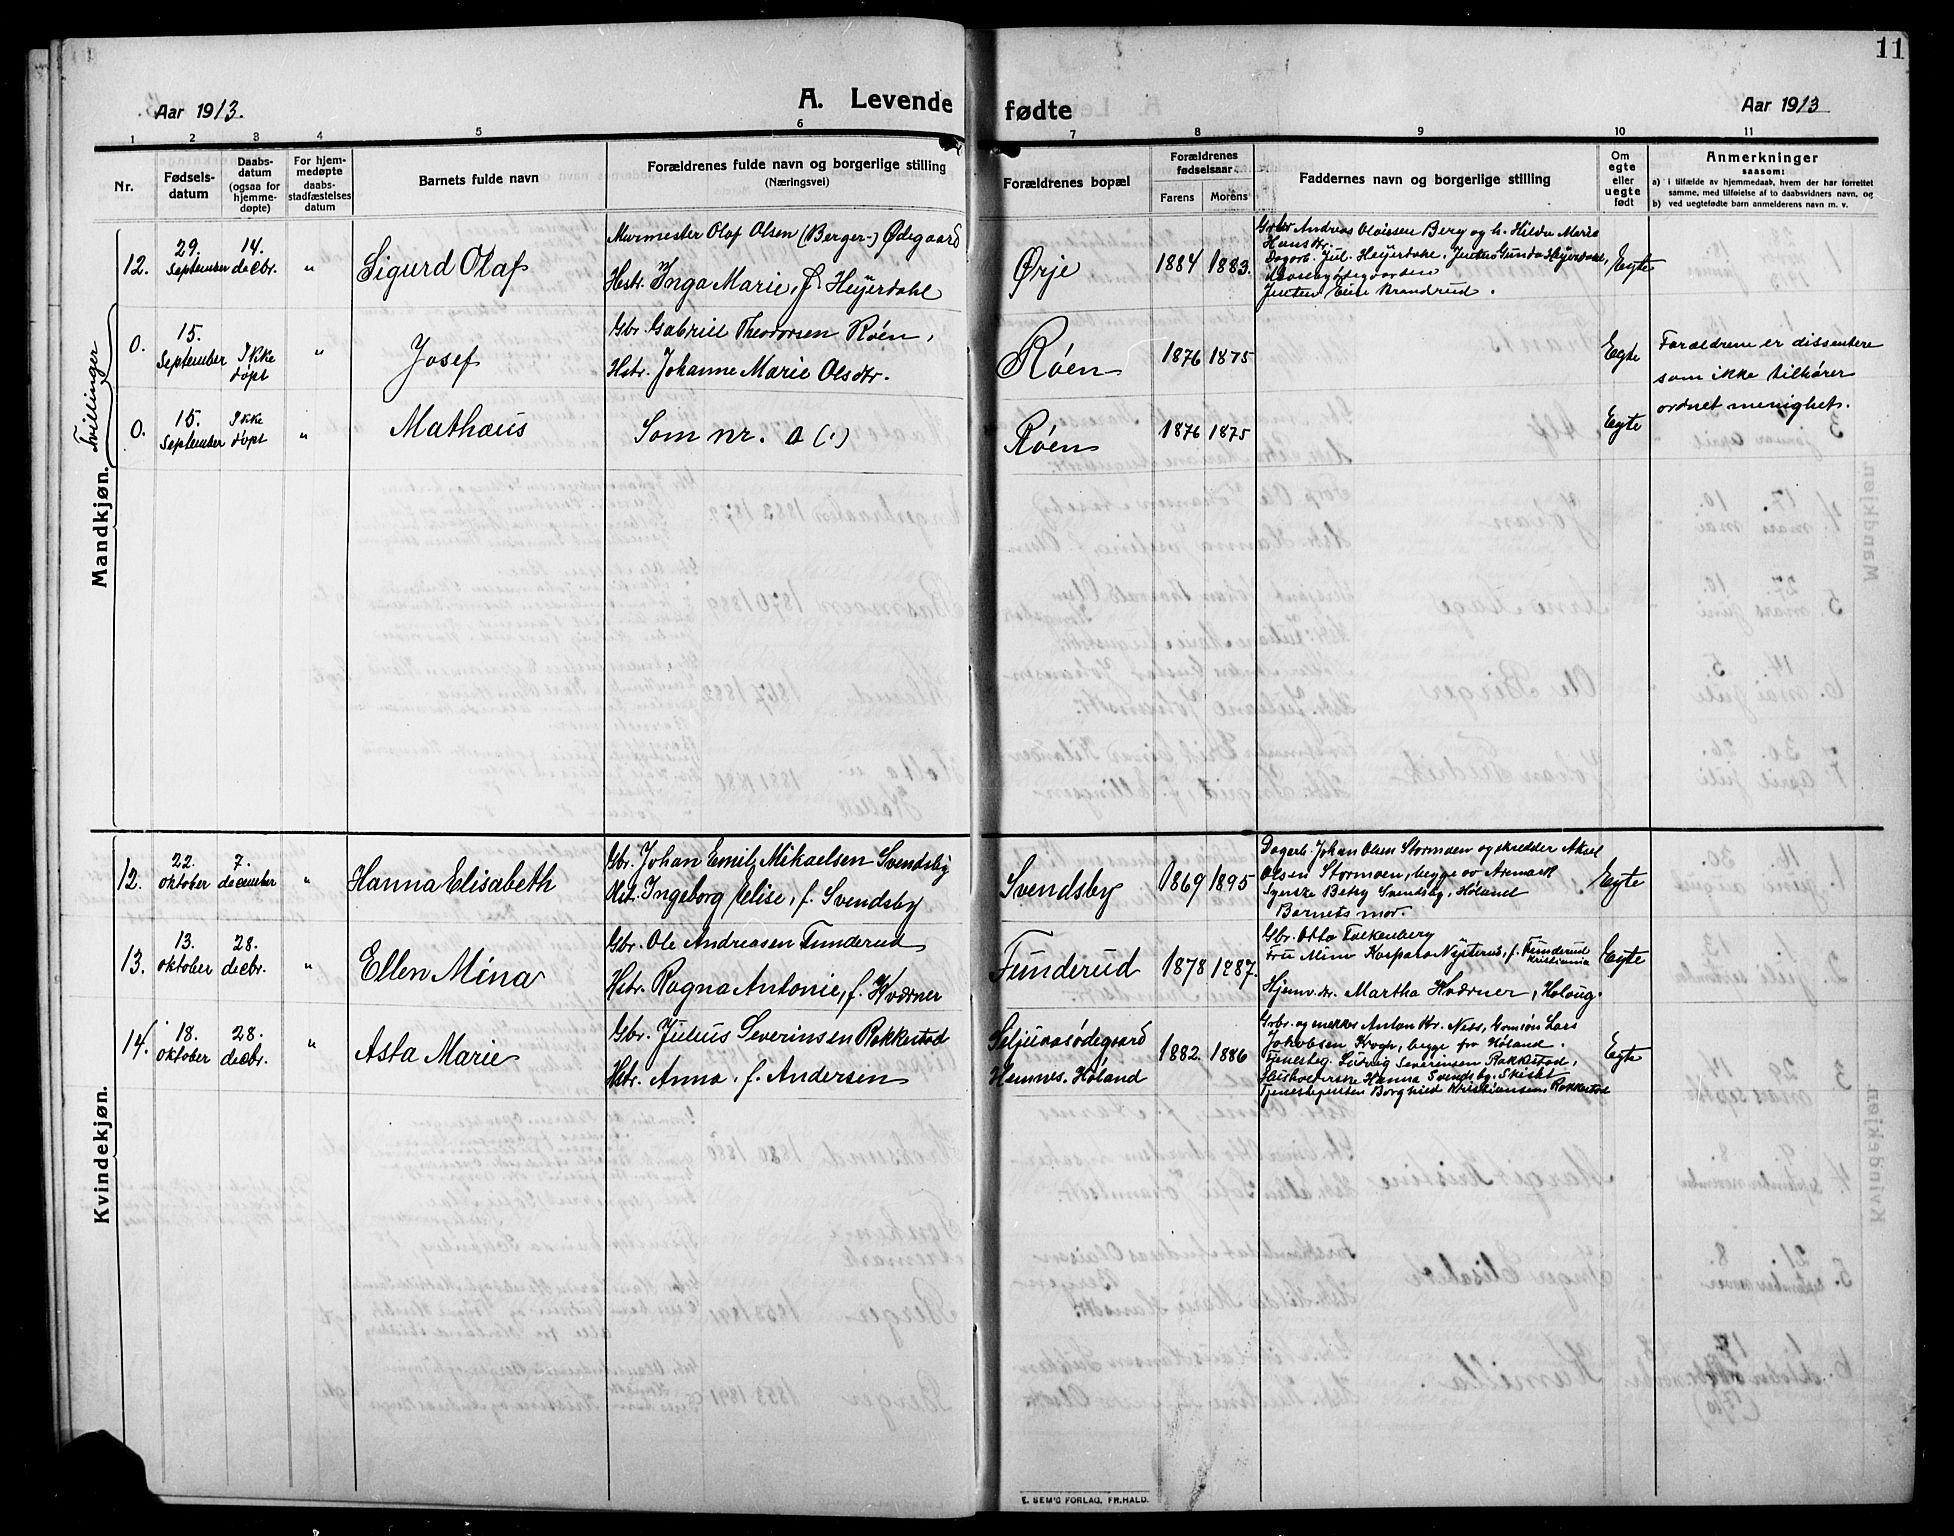 11
Aar 1913.
A. Levende
fødte
Aar 1913
1 2 3 4 5 6 7 8 9 10 11
Nr.
Fødsels-
datum
Daabs-
datum
(ogsaa for
hjemme-
døpte)
For hjem-
medøpte
daabs-
stadfæstelses
datum
Barnets fulde navn
Forældrenes fulde navn og borgerlige stilling
(Næringsvei)
Forældrenes bopæl
Forældrenes
fødselsaar
Farens
Morens
Faddernes navn og borgerlige stilling
Om
egte
eller
uegte
født
Anmerkninger
saasom:
a) i tilfælde av hjemmedaab, hvem der har forrettet
samme, med tilføielse af to daabsvidners navn, og
b) ved uegtefødte barn anmelderens navn m. v.
Mandkjøn.
Tvillinger
12.
29.
September
14.
decbr.
"
Sigurd Olaf
Murmester Olaf Olsen (Berger-) Ødegaard
Hstr. Inga Marie, f. Heyerdahl
Ørje
1884 1883.
Gbr. Andreas Olaissen Berg og h. Hilda Marie
Hansdtr.
Dagarb. Jul. Heyerdahl, Jenten Gunda Heyerdahl,
Jenten Elise Brandrud.
Egte
0.
15.
September
Ikke
døpt
"
Josef
Gbr. Gabriel Theodorsen Røen,
Hstr. Johanne Marie Olsdtr.
Røen
1876 1875
Egte
Forældrene er dissentere
som ikke tilhører
ordnet menighet.
0.
15.
September
Ikke
døpt
"
Mathæus
Som nr. 0 (.)
Røen
1876 1875
Egte
Kvindekjøn.
12.
22.
oktober
7.
december
"
Hanna Elisabeth
Gbr. Johan Emil Mikaelsen Svendsby
Hst. Ingeborg Elise, f. Svendsby
Svendsby
1869 1895
Dagarb. Johan Olsen Stormoen og skrædder Aksel
Olsen Stormoen, begge av Aremark
Syerske Betsy Svendsby, Høland
Barnets mor.
Egte
13.
13.
oktober
28.
decbr.
"
Ellen Mina
Gbr. Ole Andreasen Funderud
Hstr. Ragna Antonie, f. Kværner
Funderud
1878 1887.
Gbr. Otto Falkenberg
Fru Mina Kaspara Nyterud, f. Funderud
Kristiania
Hjemv. dr. Martha Kværner, Kolaug.
Egte
14.
18.
oktober
28.
decbr.
"
Asta Marie
Gbr. Julius Severinsen Rakkestad
Hstr. Anna, f. Andersen
Hemnes, Høland
1882. 1886
Gbr. og Anton Kr. Ness, Lars
Jakobsen Krogh, begge fra Høland.
Ludvig Severinsen Rakkestad,
Hanna Svendsby, Skisbt
Tjenestejenten Borghild Kristiansen, Rakkestad
Egte
E. SEM'S FORLAG, FR.HALD.